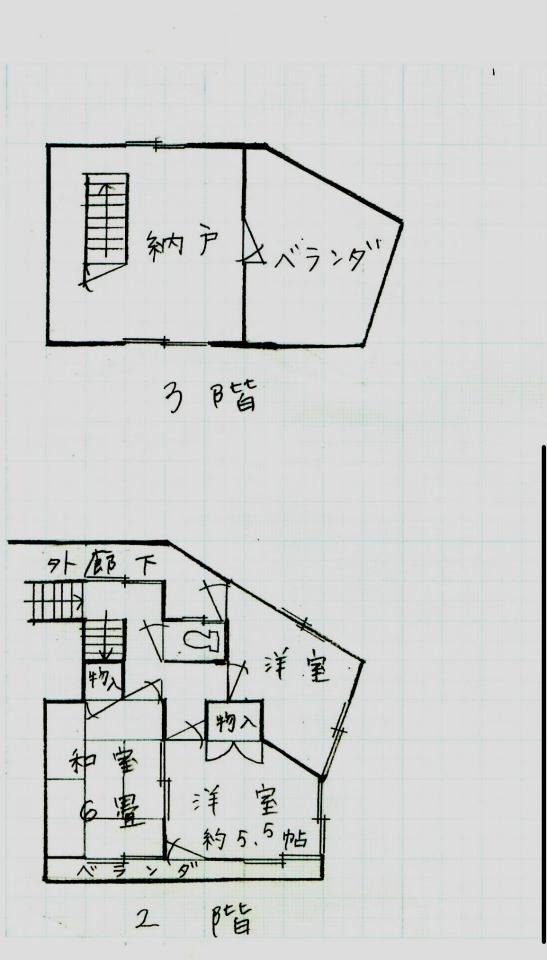 納戸
ベランダ
3階
外廊下
物入
洋室
物入
和室
6畳
洋室
約5.5帖
ベランダ
2階